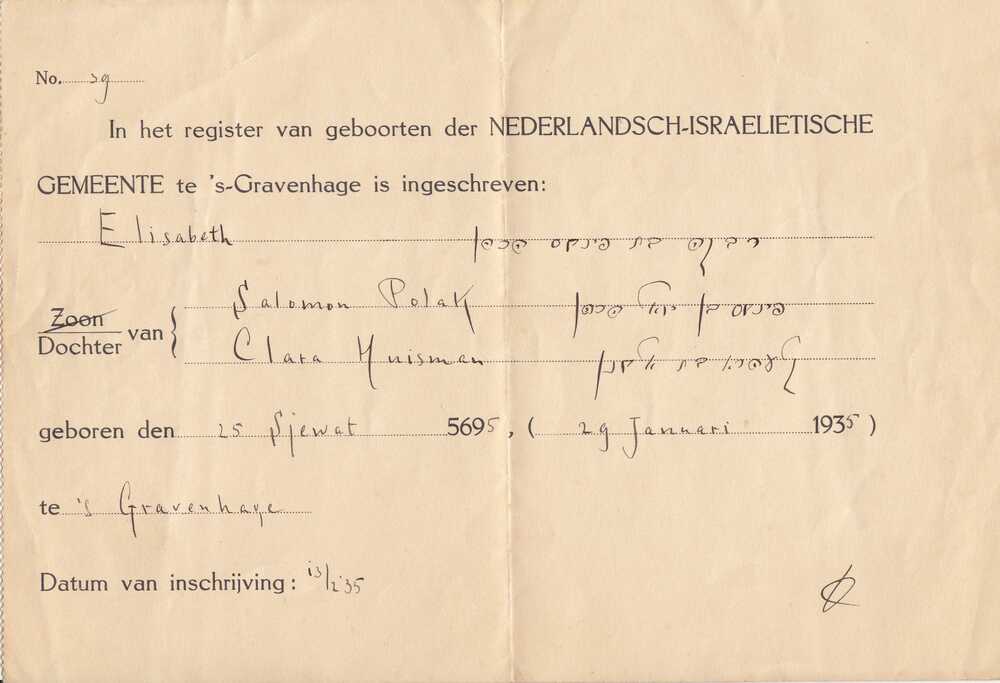 No. 39
In het register van geboorten der NEDERLANDSCH-ISRAELIETISCHE
GEMEENTE te 's-Gravenhage is ingeschreven:
Elisabeth
Zoon
Dochter van { Salomon Polak
Clara Huisman
geboren den 25 Sjewat 5695, ( 29 Januari 1935 )
te 's Gravenhage
Datum van inschrijving: 13/2 '35